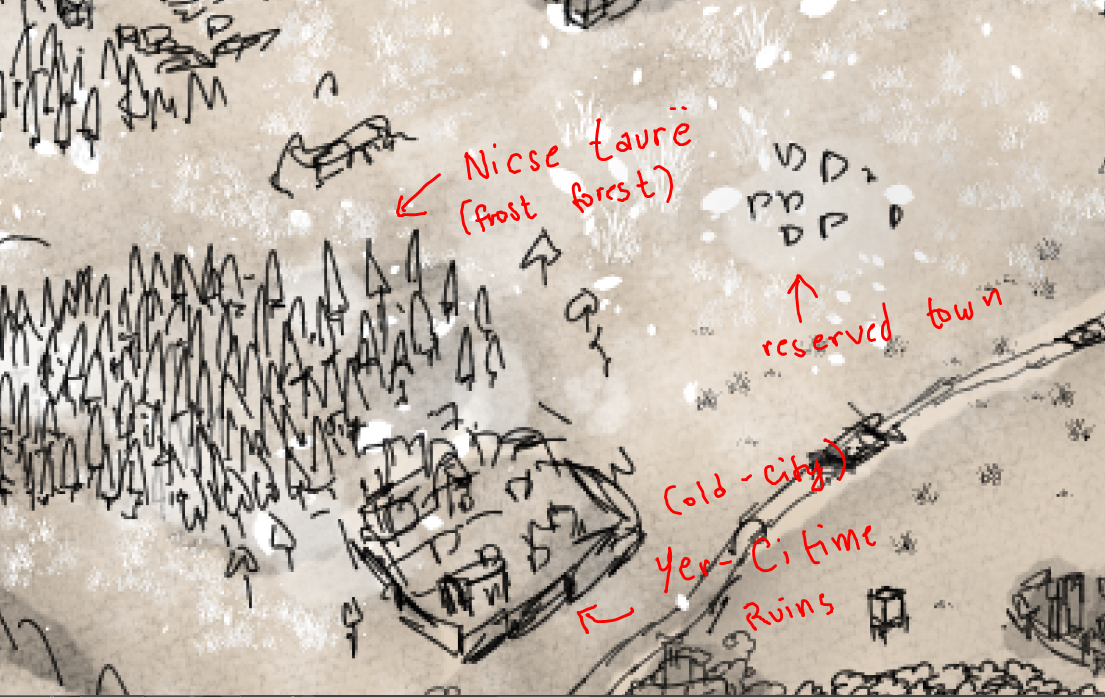 Nicse taurë
(frost forest)
reserved town
(old-city)
Yer-Citime
Ruins